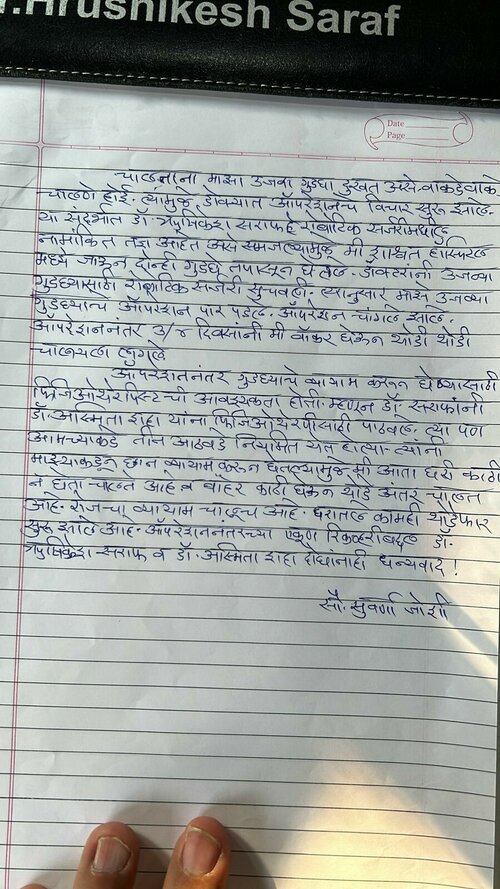 r.Hrushikesh Saraf
Date
Page
चालताना माझा उजवा गुडघा दुखत असे. वाकडेवाकडे
चालणे होई. त्यामुळे डोक्यात ऑपरेशनचे विचार सुरू झाले.
या संदर्भात डॉ. ऋषिकेश सराफ हे रोबोटिक सर्जरीमधील
नामांकित तज्ञ आहेत असे समजल्यामुळे मी शाश्वत हॉस्पिटल
मध्ये जाऊन दोन्ही गुडघे तपासून घेतले. डॉक्टरांनी उजव्या
गुडघ्यासाठी रोबोटिक सर्जरी सुचवली. त्यानुसार माझे उजव्या
गुडघ्याचे ऑपरेशन पार पडले. ऑपरेशन चांगले झाले.
ऑपरेशननंतर ३/४ दिवसांनी मी वॉकर घेऊन थोडी थोडी
चालायला लागले
ऑपरेशननंतर गुडघ्याचे व्यायाम करून घेण्यासाठी
फिजिओथेरपिस्टची आवश्यकता होती म्हणून डॉ. सराफांनी
डॉ. अस्मिता शहा यांना फिजिओथेरपीसाठी पाठवले. त्या पण
आमच्याकडे तीन आठवडे नियमित येत होत्या. त्यांनी
माझ्याकडून छान व्यायाम करून घेतल्यामुळे मी आता घरी काठी
न घेता चालत आहे व बाहेर काठी घेऊन थोडे अंतर चालत
आहे. रोजचा व्यायाम चालूच आहे. घरातले कामही थोडेफार
सुरू झाले आहे. ऑपरेशननंतरच्या एकूण रिकव्हरीबद्दल डॉ.
ऋषिकेश सराफ व डॉ. अस्मिता शहा दोघांनाही धन्यवाद !
सौ. सुवर्णा जोशी